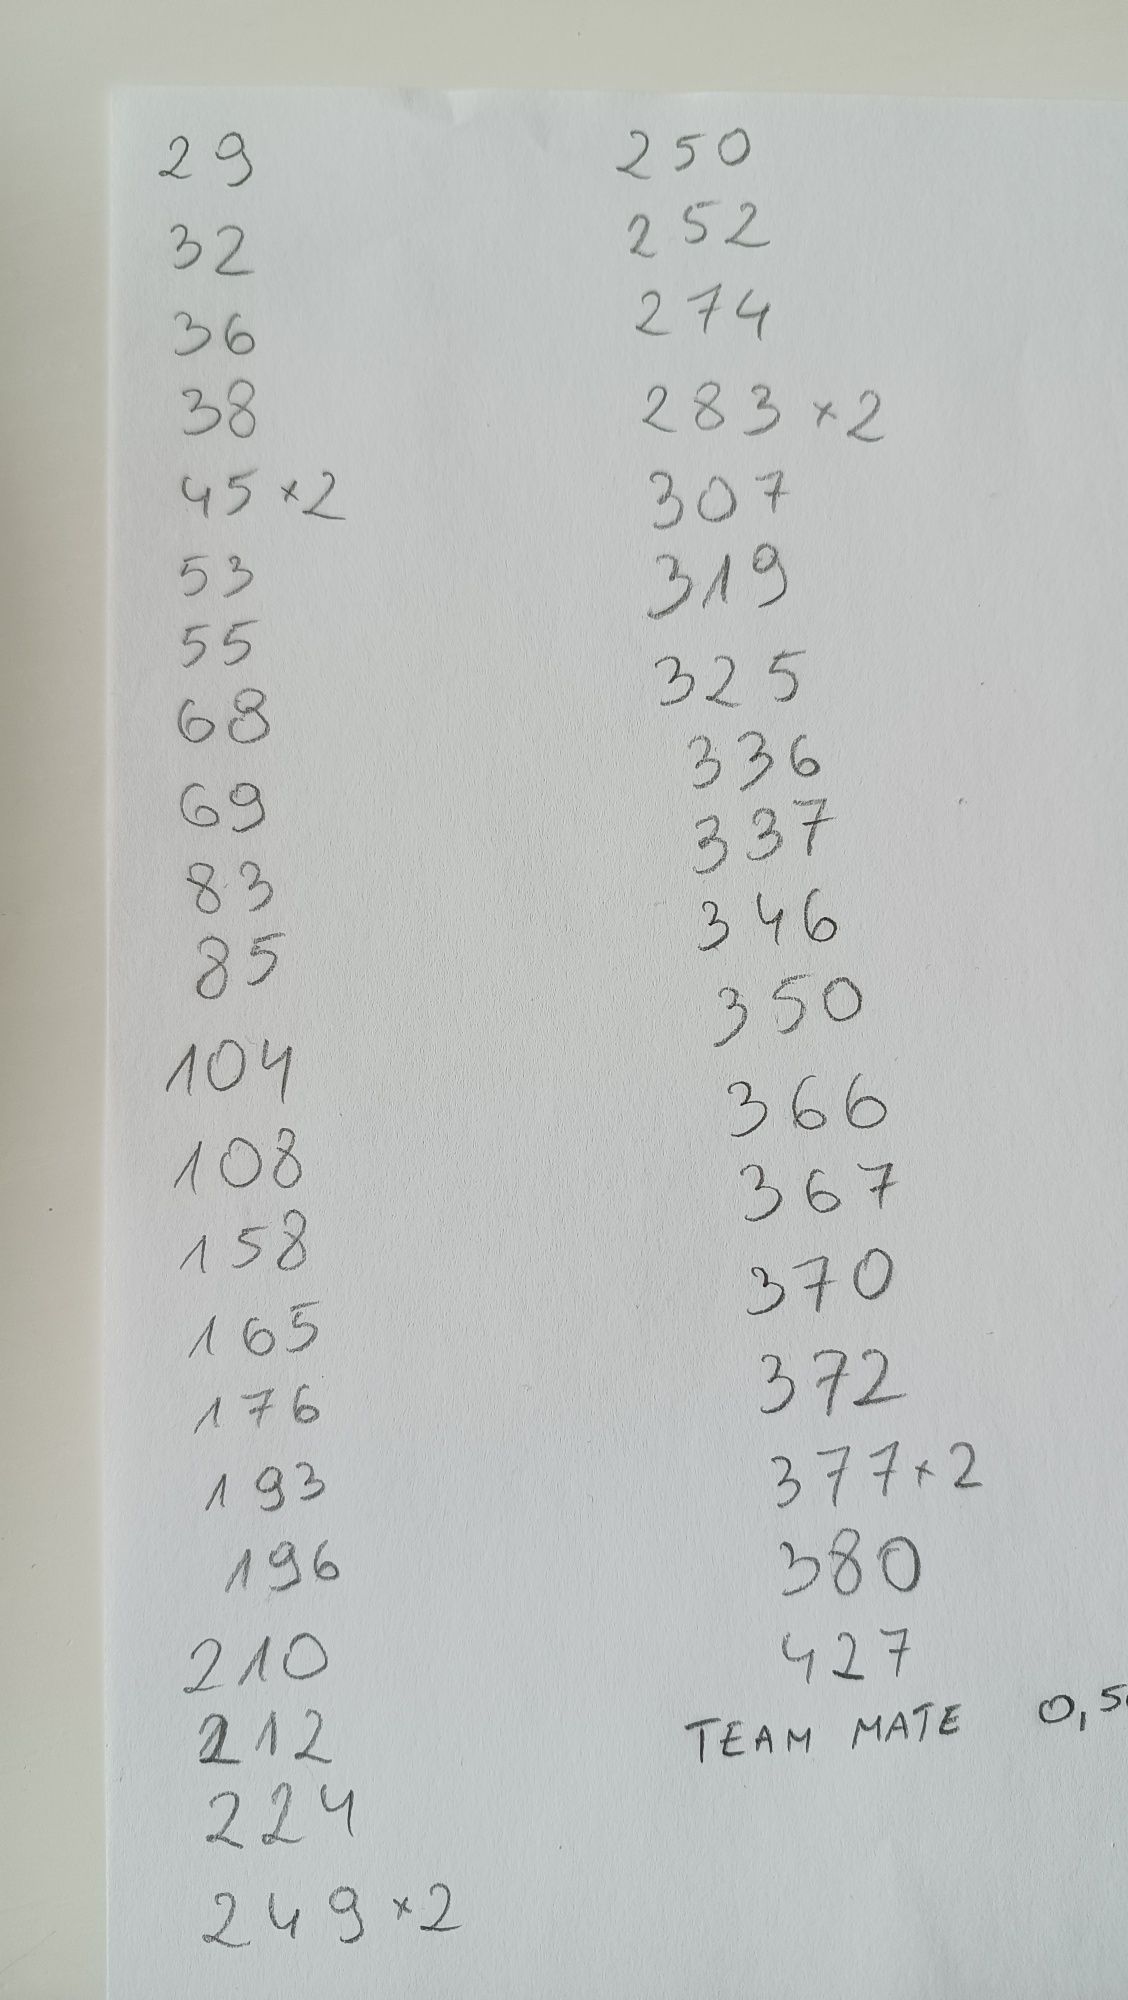 29
32
36
38
45 x2
53
55
68
69
83
85
104
108
158
165
176
193
196
210
212
224
249 x2
250
252
274
283 x2
307
319
325
336
337
346
350
366
367
370
372
377 x2
380
427
TEAM MATE 0,5